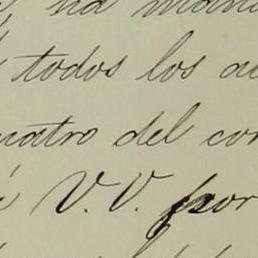 ha man
todos los a
uatro del con
V. V. por